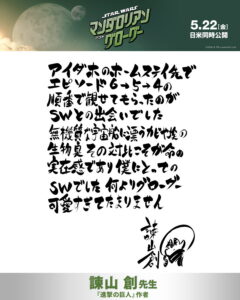 STAR WARS
マンダロリアン
グローグー
5.22[金]
日米同時公開
アイダホのホームステイ先で
エピソード6→5→4の
順番で観せてもらったのが
SWとの出会いでした
無機質な宇宙船に漂う
生物臭 その対比こそが命の
実在感であり僕にとっての
SWでした 何よりグローグー
可愛すぎてたまりません
諫山創
諫山 創先生
『進撃の巨人』作者